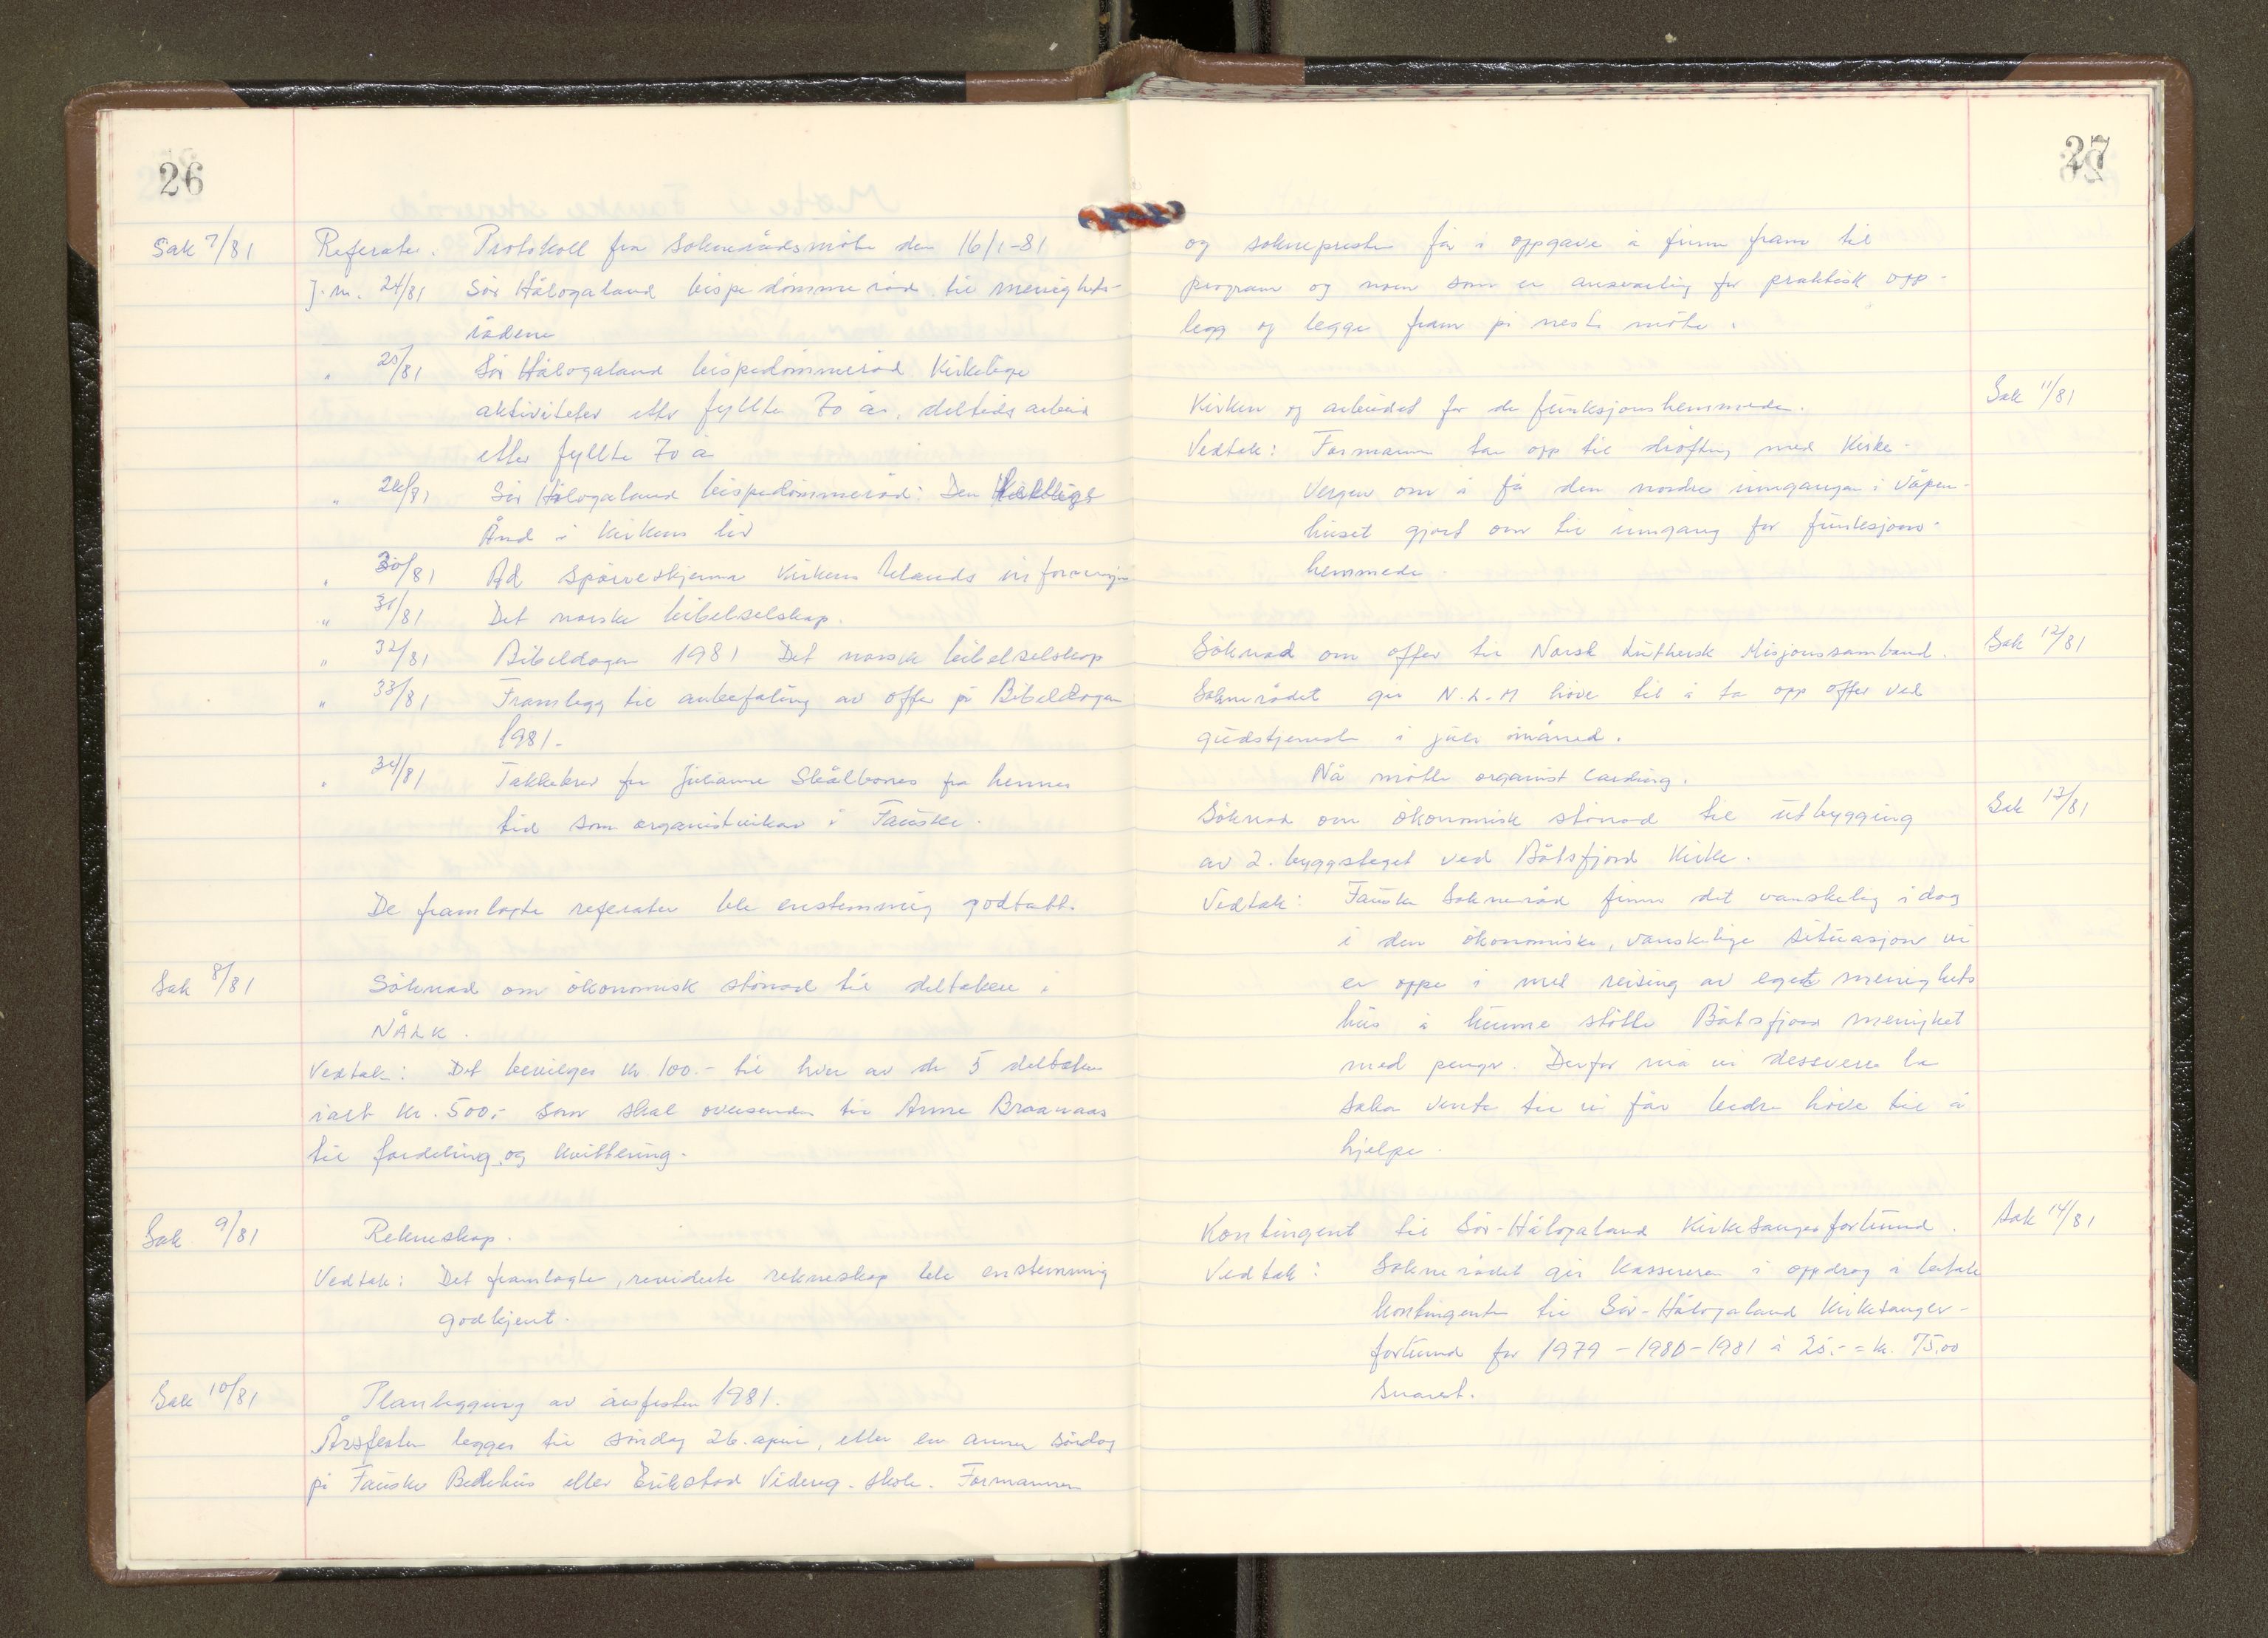 26
Sak 7/81 Referater. Protokoll fra soknerådsmöte den 16/1-81
J.nr. 24/81 Sör Hålogaland bispedömmeråd til menighets-
rådene
" 25/81 Sör Hålogaland bispedömmeråd Kirkelige
aktiviteter etter fyllte 70 år, deltids arbeid
etter fyllte 70 år
" 26/81 Sör Hålogaland bispedömmeråd: Den Hellige
Ånd i kirkens liv
" 30/81 Ad spörreskjema Kirkens Utlands informasjon
" 31/81 Det norske bibelselskap.
" 32/81 Bibeldagen 1981 Det norske bibelselskap
" 33/81 Framlegg til anbefaling av offer på Bibeldagen
1981.-
" 34/81 Takkebrev fra Julianne Skålbones fra hennes
tid som organistvikar i Fauske.
De framlagte referater ble enstemmig godtatt.
Sak 8/81 Söknad om ökonomisk stönad til deltakere i
NÅLK.
Vedtak: Det bevilges kr 100.- til hver av de 5 deltakere
ialt kr. 500,- som skal oversendes til Anne Braanaas
til fordeling og kvittering.
Sak 9/81 Rekneskap.
Vedtak: Det framlagte, reviderte rekneskap ble enstemmig
godkjent.
Sak 10/81 Planlegging av årsfesten 1981.
Årsfesten legges til söndag 26. april, eller en annen söndag
på Fauske Bedehus eller Erikstad Videreg. skole. Formannen
27
og soknepresten får i oppgave å finne fram til
program og noen som er ansvarlig for praktisk opp-
legg og legges fram på neste möte.
Sak 11/81
Kirken og arbeidet for de funksjonshemmede.
Vedtak: Formannen tar opp til dröfting med Kirke-
vergen om å få den nordre inngangen i Våpen-
huset gjort om til inngang for funksjons-
hemmede.
Söknad om offer til Norsk Luthersk Misjonssamband. Sak 12/81
Soknerådet gir N.L.M höve til å ta opp offer ved
gudstjeneste i juli måned.
Nå mötte organist Carding.
Söknad om ökonomisk stönad til utbygging Sak 13/81
av 2. byggsteget ved Båtsfjord Kirke.
Vedtak: Fauske Sokneråd finner det vanskelig i dag
i den ökonomiske, vanskelige situasjon vi
er oppe i med reising av eget menighets
hus å kunne stötte Båtsfjord menighet
med penger. Derfor må vi dessverre la
saken vente til vi får bedre höve til å
hjelpe.
Kontingent til Sör-Hålogaland Kirkesangerforbund. Sak 14/81
Vedtak: Soknerådet gir kassereren i oppdrag å betale
kontingenten til Sör-Hålogaland Kirkesanger-
forbund for 1979-1980-1981 à 25.- = kr. 75,00
snarest.